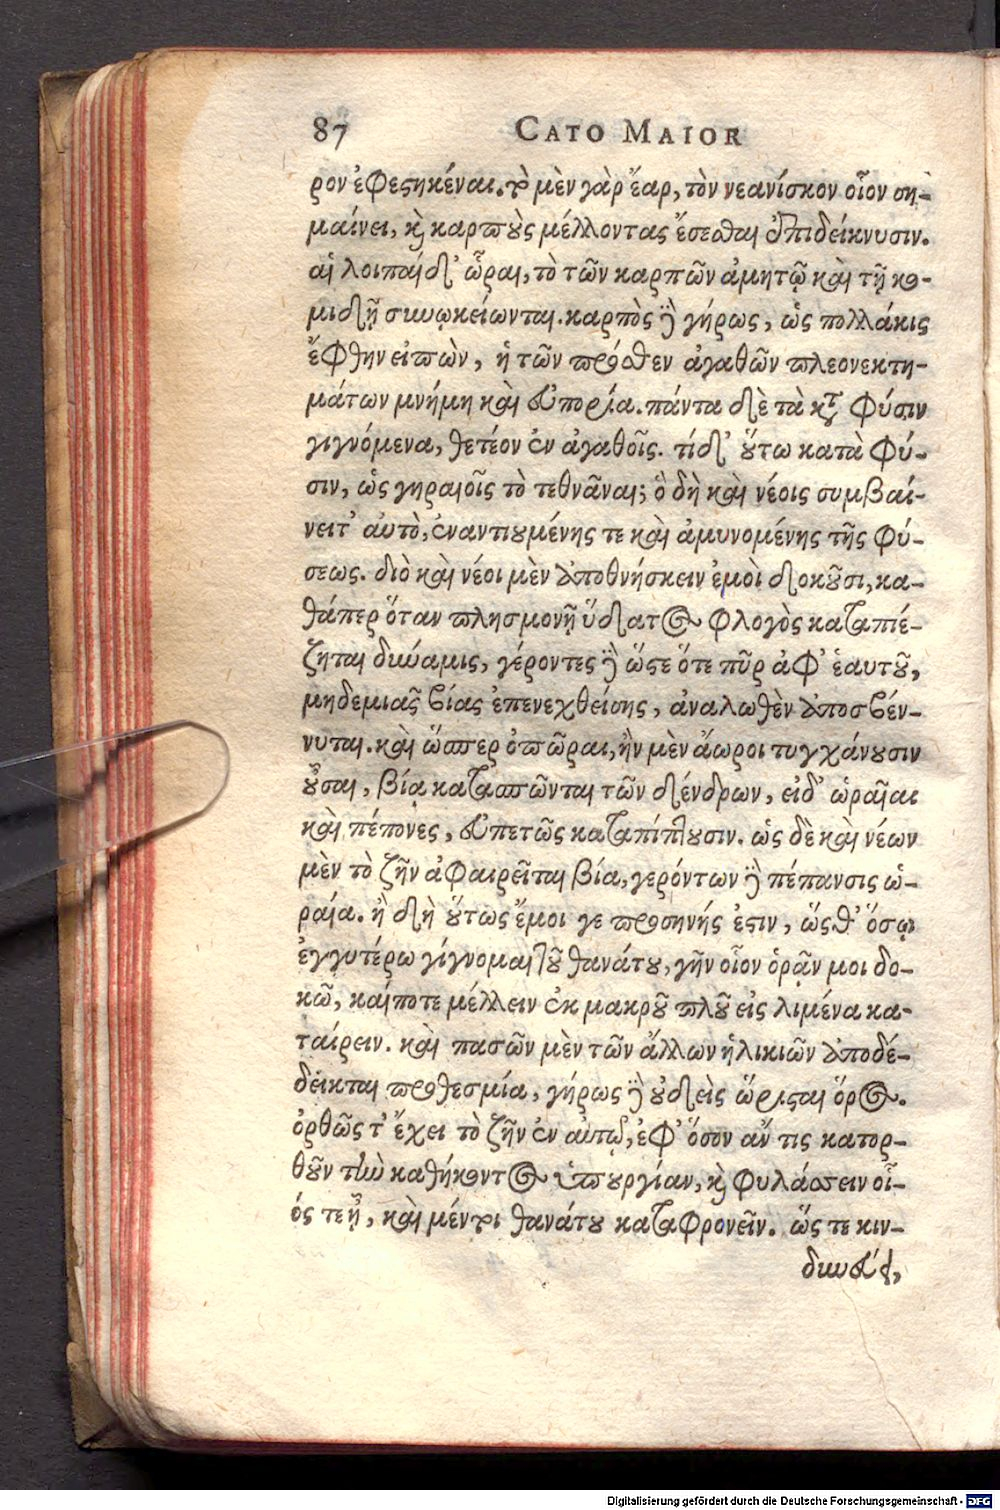 87 CATO MAIOR
ρον ἐφεστηκέναι. τὸ μὲν γὰρ ἔαρ, τὸν νεανίσκον οἷον ση-
μαίνει, καὶ καρποὺς μέλλοντας ἔσεσθαι ἐπιδείκνυσιν.
αἱ λοιπαὶ δ' ὧραι, τὸ τῶν καρπῶν ἀμητῷ καὶ τῇ κο-
μιδῇ συνῳκείωνται. καρπὸς δὲ γήρως, ὡς πολλάκις
ἔφθην εἰπὼν, ἡ τῶν πρόσθεν ἀγαθῶν πλεονεκτη-
μάτων μνήμη καὶ εὐπορία. πάντα δὲ τὰ κατὰ φύσιν
γιγνόμενα, θετέον ἐν ἀγαθοῖς. τί δ' οὕτω κατὰ φύ-
σιν, ὡς γηραιοῖς τὸ τεθνᾶναι; ὃ δὴ καὶ νέοις συμβαί-
νει τ' αὐτὸ, ἐναντιουμένης τε καὶ ἀμυνομένης τῆς φύ-
σεως. διὸ καὶ νέοι μὲν ἀποθνήσκειν ἐμοὶ δοκοῦσι, κα-
θάπερ ὅταν πλησμονῇ ὕδατος φλογὸς καταπιέ-
ζηται δύναμις, γέροντες δὲ ὥστε ὅτε πῦρ ἀφ' ἑαυτοῦ,
μηδεμιᾶς βίας ἐπενεχθείσης, ἀναλωθὲν ἀποσβέν-
νυται. καὶ ὥσπερ ὀπῶραι, ἢν μὲν ἄωροι τυγχάνουσιν
οὖσαι, βίᾳ κατασπῶνται τῶν δένδρων, εἰ δ' ὡραῖαι
καὶ πέπονες, εὐπετῶς καταπίπτουσιν. ὡς δὲ καὶ νέων
μὲν τὸ ζῆν ἀφαιρεῖται βία, γερόντων δὲ πέπανσις ὡ-
ραία. ἣ δὴ οὕτως ἔμοι γε προσηνής ἐστιν, ὥσθ' ὅσῳ
ἐγγυτέρω γίγνομαι τοῦ θανάτου, γῆν οἷον ὁρᾷν μοι δο-
κῶ, καί ποτε μέλλειν ἐκ μακροῦ πλοῦ εἰς λιμένα κα-
ταίρειν. καὶ πασῶν μὲν τῶν ἄλλων ἡλικιῶν ἀποδέ-
δεικται προθεσμία, γήρως δὲ οὐδεὶς ὥρισται ὅρος.
ὀρθῶς τ' ἔχει τὸ ζῆν ἐν αὐτῷ, ἐφ' ὅσον ἄν τις κατορ-
θοῦν τὴν καθήκοντος ὑπουργίαν, καὶ φυλάσσειν οἷ-
ός τε ᾖ, καὶ μέντοι θανάτου καταφρονεῖν. ὥς τε κιν-
δυνεύει,
Digitalisierung gefördert durch die Deutsche Forschungsgemeinschaft - DFG